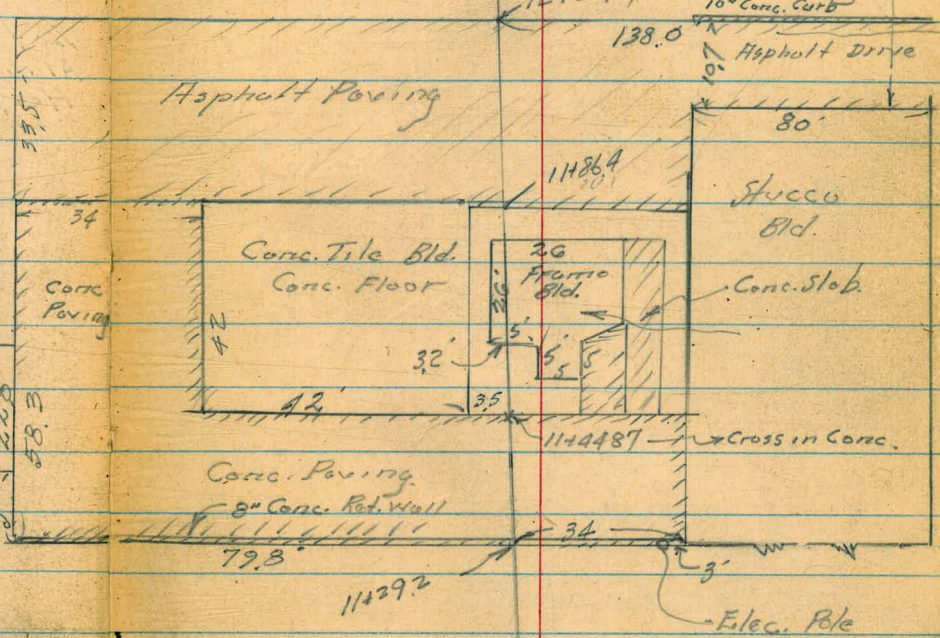 10" Conc. Curb
138.0
10.7
Asphalt Drive
33.5
Asphalt Paving
80'
11+86.4
34
Stucco
Bld.
Conc. Tile Bld.
Conc. Floor
26
Frame
Bld.
26'
Conc. Slab.
Conc
Paving
42
5'
32'
5'
5
5
42'
3.5
11+44.87
Cross in Conc.
58.3
Conc. Paving
8" Conc. Ret. Wall
34
79.8'
3'
11+29.2
Elec. Pole